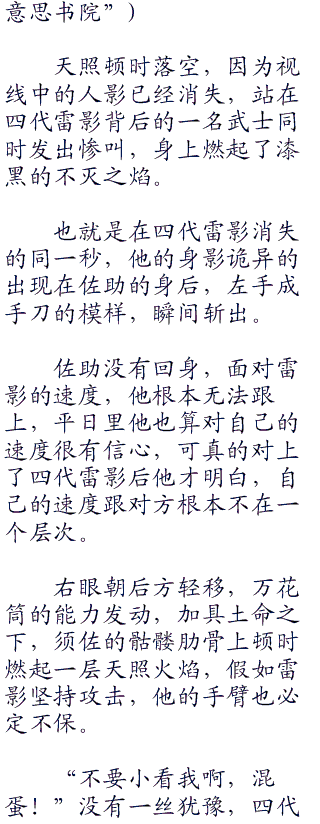 意思书院”）
天照顿时落空，因为视
线中的人影已经消失，站在
四代雷影背后的一名武士同
时发出惨叫，身上燃起了漆
黑的不灭之焰。
也就是在四代雷影消失
的同一秒，他的身影诡异的
出现在佐助的身后，左手成
手刀的模样，瞬间斩出。
佐助没有回身，面对雷
影的速度，他根本无法跟
上，平日里他也算对自己的
速度很有信心，可真的对上
了四代雷影后他才明白，自
己的速度跟对方根本不在一
个层次。
右眼朝后方轻移，万花
筒的能力发动，加具土命之
下，须佐的骷髅肋骨上顿时
燃起一层天照火焰，假如雷
影坚持攻击，他的手臂也必
定不保。
“不要小看我啊，混
蛋！”没有一丝犹豫，四代